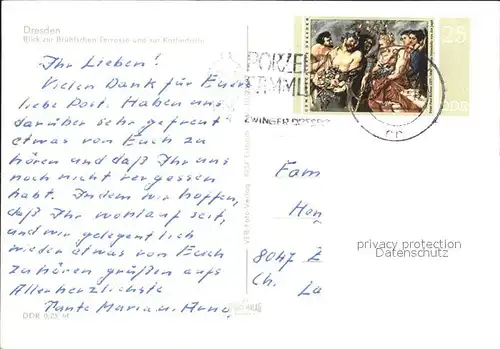 Dresden
Blick zur Brühlschen Terrasse und zur Kathedrale
Ihr Lieben!
Vielen Dank für Eure
liebe Post. Haben uns
darüber sehr gefreut
etwas von Euch zu
hören und daß Ihr uns
noch nicht vergessen
habt. Indem wir hoffen,
daß Ihr wohlauf seit,
und wir gelegentlich
wieder etwas von Euch
zu hören grüßen aufs
Allerherzlichste
Tante Maria u. Arno
DDR 0,25 M
VEB Foto-Verlag
PORZEL
AMML
ZWINGER DRESD
25
DDR
Fam
Hon
8047 Z
Ch. La
privacy protection
Datenschutz